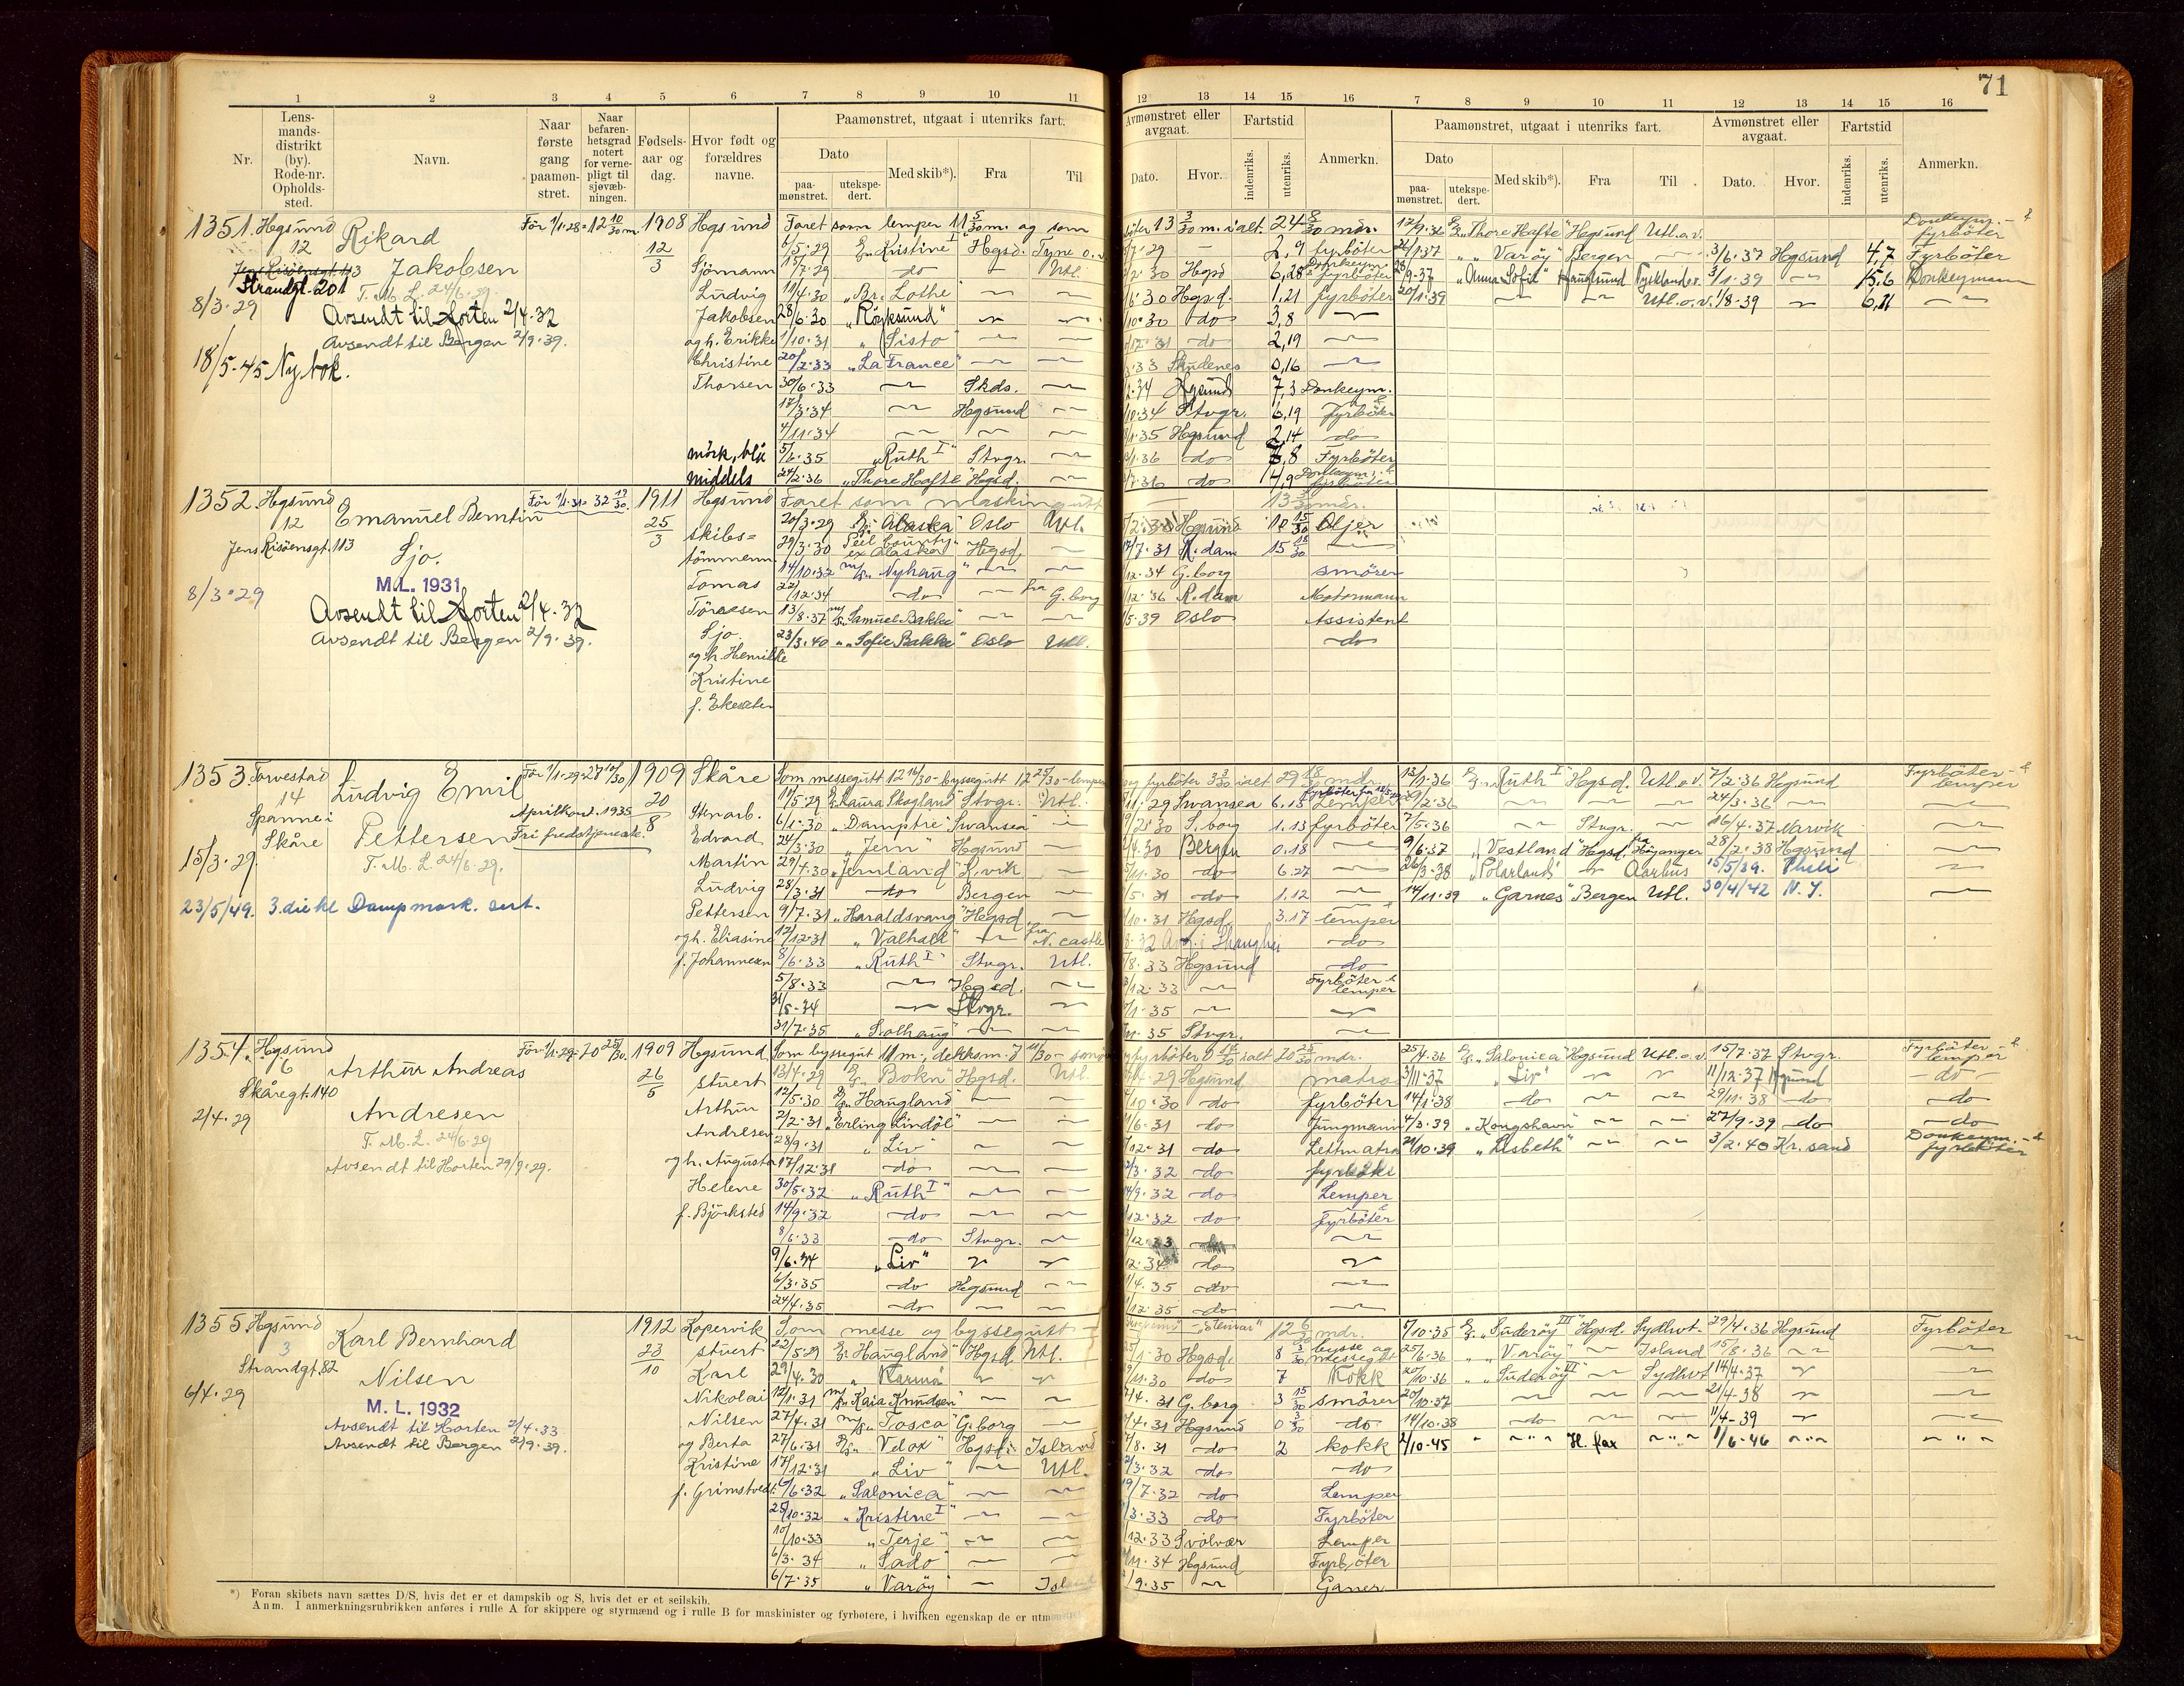 71
1 2 3 4 5 6 7 8 9 10 11 12 13 14 15 16 7 8 9 10 11 12 13 14 15 16
Nr.
Lens-
mands-
distrikt
(by).
Rode-nr.
Opholds-
sted.
Navn.
Naar
første
gang
paamøn-
stret.
Naar
befaren-
hetsgrad
notert
for verne-
pligt til
sjøvæb-
ningen.
Fødsels-
aar og
dag.
Hvor født og
forældres
navne.
Paamønstret, utgaat i utenriks fart.
Dato
paa-
mønstret.
utekspe-
dert.
Med skib*).
Fra
Til
Avmønstret eller
avgaat.
Dato.
Hvor.
Fartstid
indenriks.
utenriks.
Anmerkn.
Paamønstret, utgaat i utenriks fart.
Dato
paa-
mønstret.
utekspe-
dert.
Med skib*).
Fra
Til
Avmønstret eller
avgaat.
Dato.
Hvor.
Fartstid
indenriks.
utenriks.
Anmerkn.
1351. Hgsund
12
Strandgt. 201
8/3-29
18/5-45 Ny bok.
Rikard
Jakobsen
T.M.L. 24/6-29.
Avsendt til Horten 2/4-32
Avsendt til Bergen 2/9-39.
1908
12/3
Hgsund
Sjömann
Ludvig
Jakobsen
og h. Erikke
Christine
Thorsen
mörk, blå
middels
Faret som lemper 11 5/30 m. og som
6/5-29 "Kristine I" Hgsd. Tyne o.v.
15/7-29 do Utl.
11/4-30 "Br. Lothe"
28/6-30 "Röyksund"
1/10-31 "Sisto"
20/2-33 "La France"
30/6-33 Skds.
17/3-34 Hgsund
4/11-34
5/6-35 "Ruth I" Stvgr.
24/2-36 "Thore Hafte" Hgsd.
13 3/30 m. ialt 24 8/30 mdr.
2,9 fyrböter
30 Hgsd 6,28 Donkeym. & fyrböter
30 Hgsd. 1,21 fyrböter
30 do 3,8
31 do 2,19
33 Skudenes 0,16
34 Hgsund 7,3 Donkeym.
34 Stvgr. 6,19 fyrböter
35 Hgsund 2,14 do
36 do 8 Fyrböter
36 do 4,9 Donkeym. & fyrböter
17/9-36 "Thore Hafte" Hgsund Utl. o.v. Donkeym. & fyrböter
"Varöy" Bergen 3/6-37 Hgsund 4,7 Fyrböter
9-37 "Anna Sofie" Haugesund Tyskland o.v. 3/1-39 15,6 Donkeymann
20/1-39 Utl. o.v. 1/8-39 6,11
1352 Hgsund
12
Jens Risöensgt. 113
8/3-29
Emanuel Berntin
Sjo.
M.L. 1931
Avsendt til Horten 2/4-32
Avsendt til Bergen 2/9-39.
1911
25/3
Hgsund
skibs=
tömmerm.
Tomas
Sjo
og h. Henrikke
Kristine
Faret som maskingutt 13 mdr.
20/3-29 "Alaska" Oslo Utl.
29/3-30 ex Alaska Hgsd.
14/10-32 m/s "Nyhaug"
22/12-34 do fra G.borg
13/8-37 m/s "Samuel Bakke"
23/3-40 "Sofie Bakke" Oslo Utl.
30 Hgsund 10 15/30 Oljer
7-31 R.dam 15 18/30
12-34 G.borg smörer
12-36 R.dam Motormann
5-39 Oslo Assistent
do
1353. Torvestad
14
Spanne i
Skåre
15/3-29.
23/5/49. 3. die kl Dampmask. sert.
Ludvig Emil
Pettersen
T.M.L. 24/6-29.
Aprilkont. 1935
Fri fredstjeneste.
1909
20/8
Skåre
Stenarb.
Edvard
Martin
Ludvig
Pettersen
og h. Eliasine
f. Johannesen
Som messegutt 12 14/30 - byssegutt 12 25/30 - lemper
11/5-29 "Laura Skogland" Stvgr. Utl.
6/1-30 "Damptre" Swansea
24/3-30 "Jern" Hgsund
29/4-30 "Jernland" L.vik
28/3-31 do Bergen
9/7-31 "Haraldsvang" Hgsd
12/12-31 "Valhall" fra N. castle
8/6-33 "Ruth I" Stvgr. Utl.
5/8-33 Hgsd.
31/5-34 Stvgr.
31/7-35 "Solhaug"
og fyrböter 3 ialt 29 18/30 mdr.
29 Swansea 6.15 Lemper
30 S.borg 1.13 fyrböter
4-30 Bergen 0.18
11-30 do 6.27
5-31 do 1.12
10-31 Hgsd 3.17 lemper
8-32 Avg. i Shanghai do
8-33 Hgsund do
12-33 Fyrböter & lemper
1-35
35 Stvgr.
13/1-36 "Ruth I" Hgsd. Utl. o.v. 7/2-36 Hgsund Fyrböter & lemper
2-36 24/3-36
7/5-36 Stvgr. 16/4-37 Narvik
9/6-37 "Vestland" Hgsd. fra Höyanger 28/2-38 Hgsund
26/3-38 "Polarland" Aarhus 15/5/39. Phili
14/11-39 "Garnes" Bergen Utl. 30/4/42 N.Y.
1354. Hgsund
Skåregt. 140
2/4-29
Arthur Andreas
Andresen
T.M.L. 24/6-29
Avsendt til Horten 29/9-29.
1909
26/5
Hgsund
stuert
Arthur
Andresen
og h. Augusta
Helene
f. Björksted
Som byssegut 11 m., dekksm. 7
13/4-29 "Bokn" Hgsd. Utl.
12/5-30 "Haugland"
2/2-31 "Erling Lindöe"
28/9-31 "Liv"
17/12-31 do
30/5-32 "Ruth I"
14/9-32 do
8/6-33 do Stvgr.
9/6-34 "Liv"
6/3-35 do Hgsund
24/4-35 do
29 Hgsund matros
10-30 do fyrböter
6-31 do Jungmann
12-31 do Lettmatros
3-32 do fyrböter
9-32 do Lemper
12-32 do fyrböter
12-33
12-34 do
4-35 do
12-35 do
25/4-36 "Salonica" Hgsund Utl. o.v. 15/7-37 Stvgr. Fyrböter & lemper
3/11-37 "Liv" 11/12-37 Hgsund do
14/1-38 do 29/11-38 do do
4/3-39 "Kongshavn" 27/9-39 do do
21/10-39 "Lisbeth" 3/2-40 Kr.sand Donkeym. & fyrböter
1355 Hgsund
3
Strandgt. 82
6/4-29
Karl Bernhard
Nilsen
M.L. 1932
Avsendt til Horten 2/4-33
Avsendt til Bergen 2/9-39.
1912
23/10
Kopervik
stuert
Karl
Nikolai
Nilsen
og Berta
Kristine
f. Grimstvedt
Som messe og byssegutt
22/5-29 "Haugland" Hgsd. Utl.
29/4-30 "Karma"
12/1-31 m/s "Kaia Knudsen"
27/4-31 m/s "Tosca" G.borg
27/6-31 "Velox" Hgsd. Island
17/12-31 "Liv" Utl.
6/6-32 "Salonica"
25/10-32 "Kristine I"
10/10-33 "Terje"
6/3-34 "Sado"
6/7-35 "Varöy" Island
"Steinar" 12 6/30 mdr.
1-30 Hgsd. 8 3/30 bysse og messegutt
11-30 do 7 Kokk
4-31 G.borg 3 15/30 smörer
4-31 Hgsund 0 3/30 do
8-31 do 2 kokk
3-32 do do
7-32 do Lemper
3-33 do Fyrböter
12-33 Svolvær Lemper
11-34 Hgsund Fyrböter
9-35 Ganer
5/10-35 "Suderöy III" Hgsd. Sydhvt. 29/4-36 Hgsund Fyrböter
25/6-36 "Varöy" Island 15/8-36
20/10-36 "Suderöy VI" Sydhvt 14/4-37
20/10-37 21/4-38
14/10-38 do 11/4-39
2/10-45 H.fax 1/6-46
*) Foran skibets navn sættes D/S, hvis det er et dampskib og S, hvis det er et seilskib.
Anm. I anmerkningsrubrikken anføres i rulle A for skippere og styrmænd og i rulle B for maskinister og fyrbøtere, i hvilken egenskap de er utmønstret